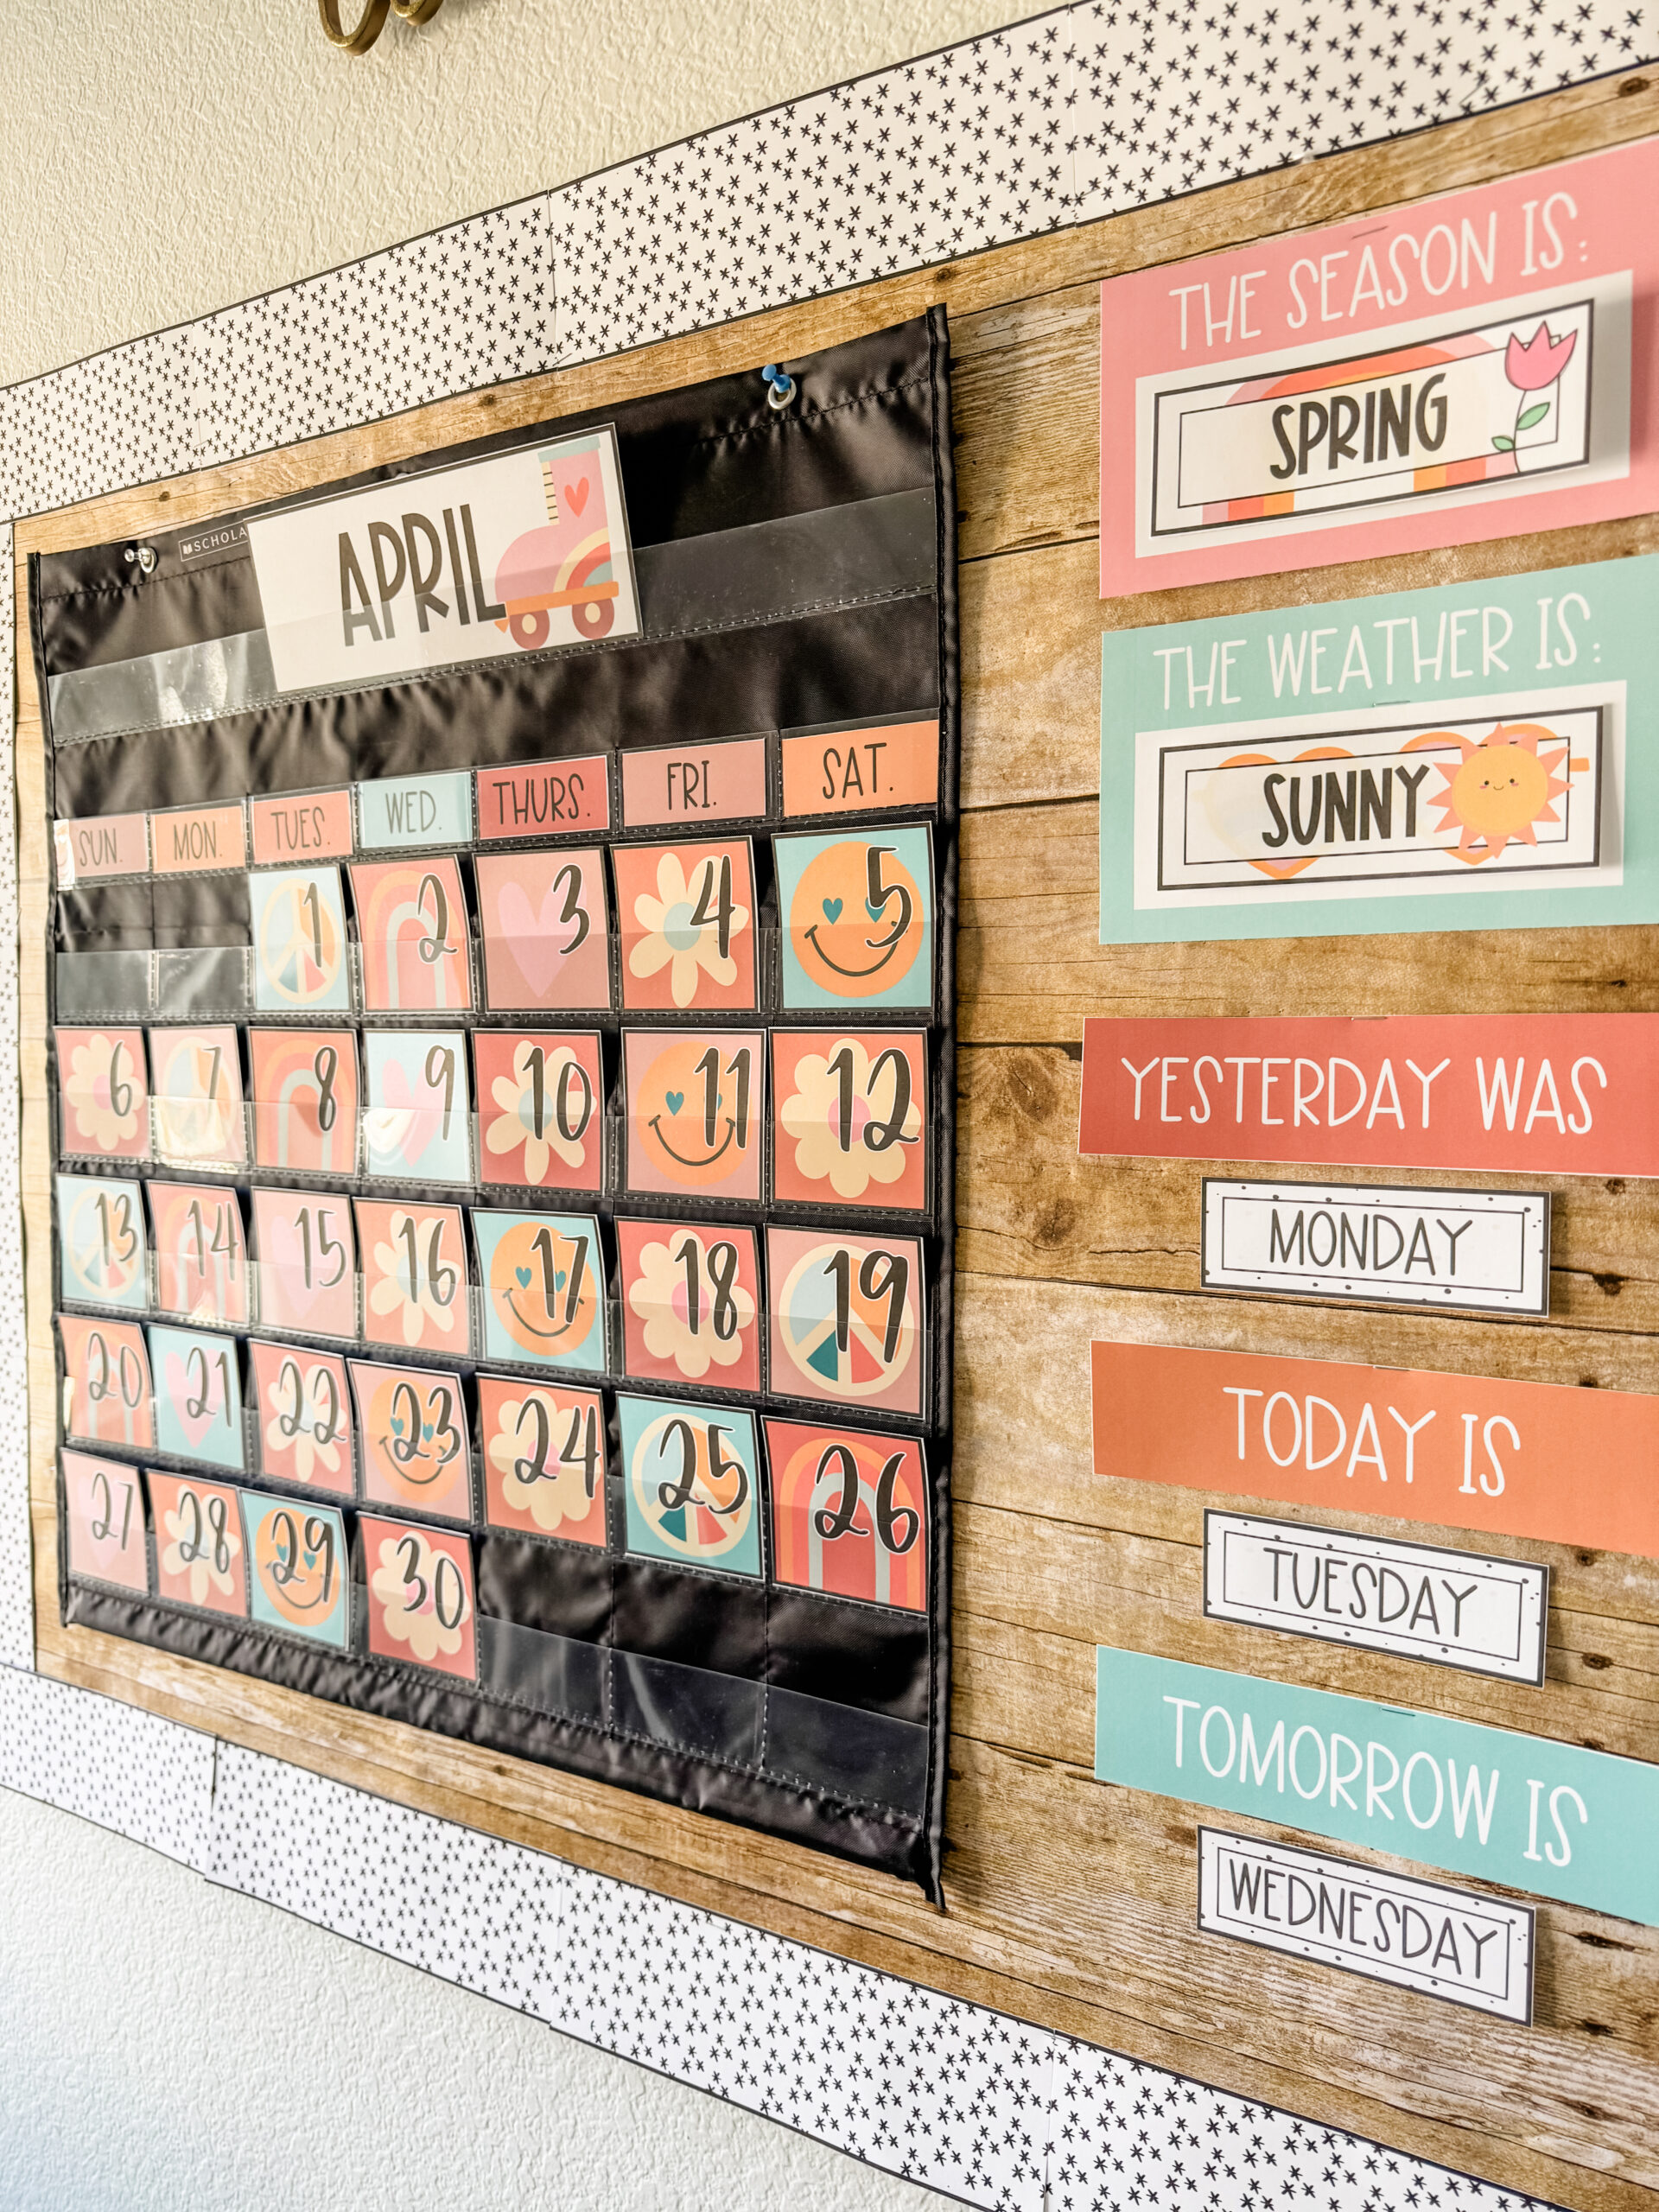 SCHOLA
APRIL
SUN. MON. TUES. WED. THURS. FRI. SAT.
1 2 3 4 5
6 7 8 9 10 11 12
13 14 15 16 17 18 19
20 21 22 23 24 25 26
27 28 29 30
THE SEASON IS:
SPRING
THE WEATHER IS:
SUNNY
YESTERDAY WAS
MONDAY
TODAY IS
TUESDAY
TOMORROW IS
WEDNESDAY